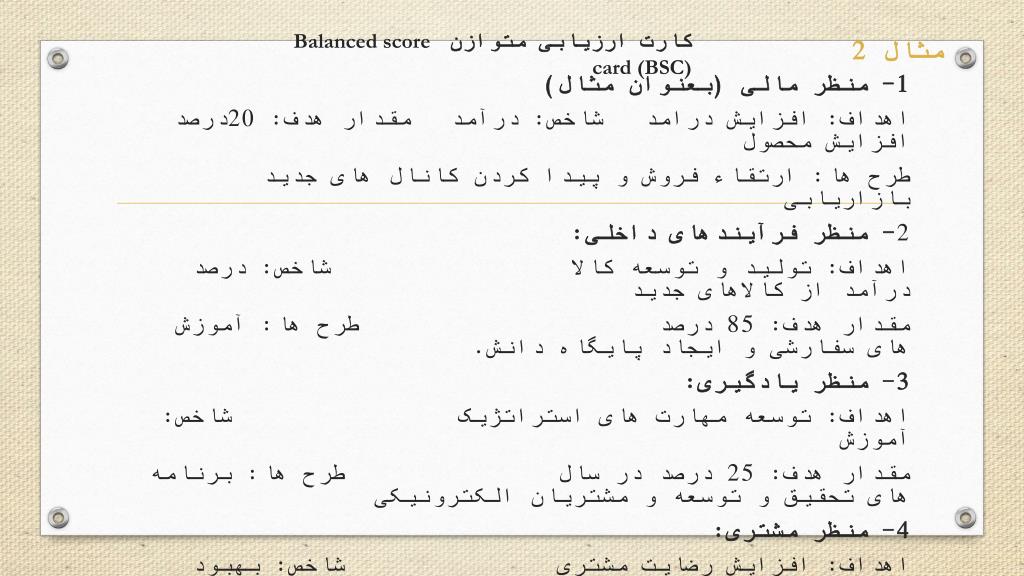 مثال 2
کارت ارزیابی متوازن Balanced score
card (BSC)
1- منظر مالی (بعنوان مثال)
اهداف: افزایش درامد شاخص: درآمد مقدار هدف: 20درصد
افزایش محصول
طرح ها: ارتقاء فروش و پیدا کردن کانال های جدید
بازاریابی
2- منظر فرآیندهای داخلی:
اهداف: تولید و توسعه کالا شاخص: درصد
درآمد از کالاهای جدید
مقدار هدف: 85 درصد طرح ها: آموزش
های سفارشی و ایجاد پایگاه دانش.
3- منظر یادگیری:
اهداف: توسعه مهارت های استراتژیک شاخص:
آموزش
مقدار هدف: 25 درصد در سال طرح ها: برنامه
های تحقیق و توسعه و مشتریان الکترونیکی
4- منظر مشتری:
اهداف: افزایش رضایت مشتری شاخص: بهبود